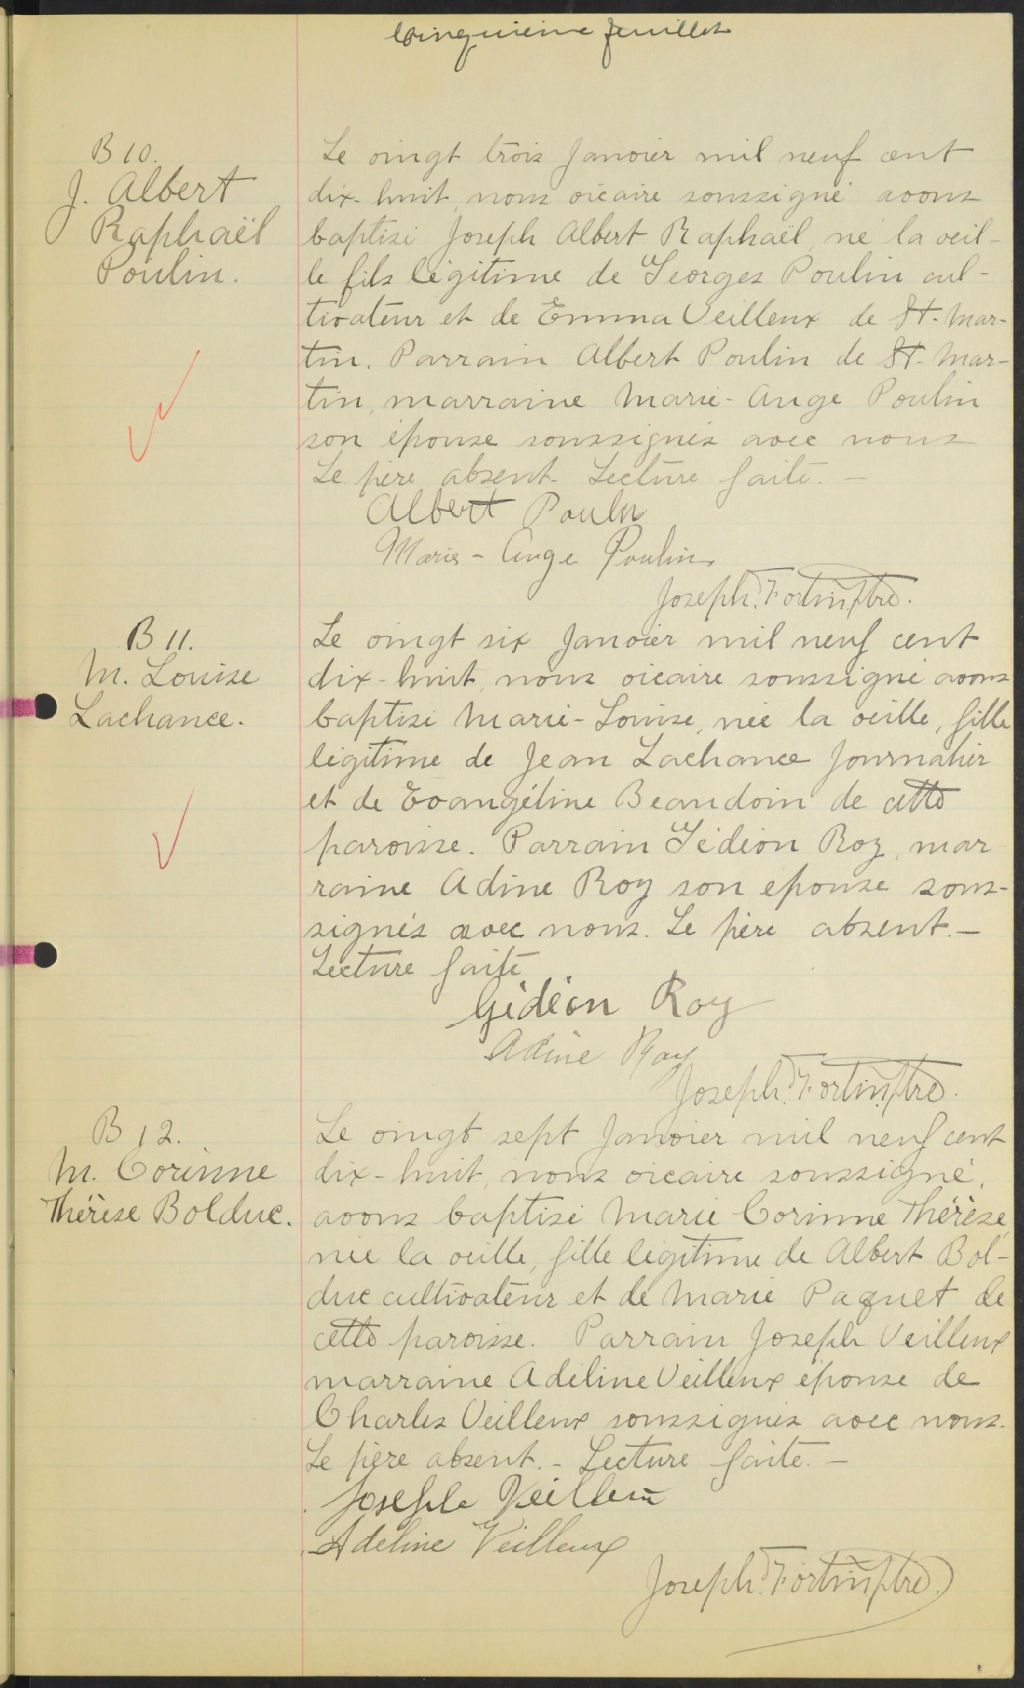 Cinquième feuillet
B 10.
J. Albert
Raphaël
Poulin.
Le vingt trois Janvier mil neuf cent
dix-huit, nous vicaire soussigné avons
baptisé Joseph Albert Raphaël né la veil-
le fils légitime de Georges Poulin cul-
tivateur et de Emma Veilleux de St-Mar-
tin. Parrain Albert Poulin de St-Mar-
tin, marraine Marie-Ange Poulin
son épouse soussignés avec nous
Le père absent Lecture faite. —
Albert Poulin
Marie-Ange Poulin
Joseph. Fortin, ptre.
B 11.
M. Louise
Lachance.
Le vingt six Janvier mil neuf cent
dix-huit, nous vicaire soussigné avons
baptisé Marie-Louise, née la veille, fille
légitime de Jean Lachance Journalier
et de Evangéline Beaudoin de cette
paroisse. Parrain Gédéon Roy, mar
raine Adine Roy son épouse sous-
signés avec nous. Le père absent. —
Lecture faite
Gédéon Roy
Adine Roy
Joseph. Fortin, ptre.
B 12.
M. Corinne
Thérèse Bolduc.
Le vingt sept Janvier mil neuf cent
dix-huit, nous vicaire soussigné,
avons baptisé Marie Corinne Thérèse
née la veille, fille légitime de Albert Bol-
duc cultivateur et de Marie Paquet de
cette paroisse. Parrain Joseph Veilleux
marraine Adéline Veilleux épouse de
Charles Veilleux soussignés avec nous.
Le père absent. - Lecture faite. —
Joseph Veilleux
Adeline Veilleux
Joseph. Fortin, ptre.